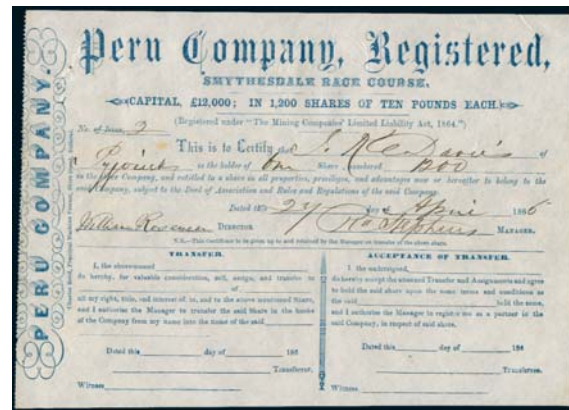 PERU COMPANY.
Peru Company, Registered,
SMYTHESDALE RACE COURSE.
CAPITAL, £12,000; IN 1,200 SHARES OF TEN POUNDS EACH.
(Registered under "The Mining Companies' Limited Liability Act, 1864.")
No. of Issue, 2
This is to Certify that Davies of
is the holder of One Share numbered 1200
in the above Company, and entitled to a share in all properties, privileges, and advantages now or hereafter to belong to the
said Company, subject to the Deed of Association and Rules and Regulations of the said Company.
Dated this 27 day of April 1866
William DIRECTOR. Stephens MANAGER.
N.B.—This Certificate to be given up to and retained by the Manager on transfer of the above share.
TRANSFER.
I, the abovenamed
do hereby, for valuable consideration, sell, assign, and transfer to
of
all my right, title, and interest of, in, and to the above mentioned Share,
and I authorise the Manager to transfer the said Share in the books
of the Company from my name into the name of the said
Dated this day of 186
Transferor.
Witness
ACCEPTANCE OF TRANSFER.
I the undersigned,
do hereby accept the above Transfer and Assignment and agree
to hold the said share upon the same terms and conditions as
the said held the same,
and I authorise the Manager to register me as a partner in the
said Company, in respect of said share.
Dated this day of 186
Transferee.
Witness